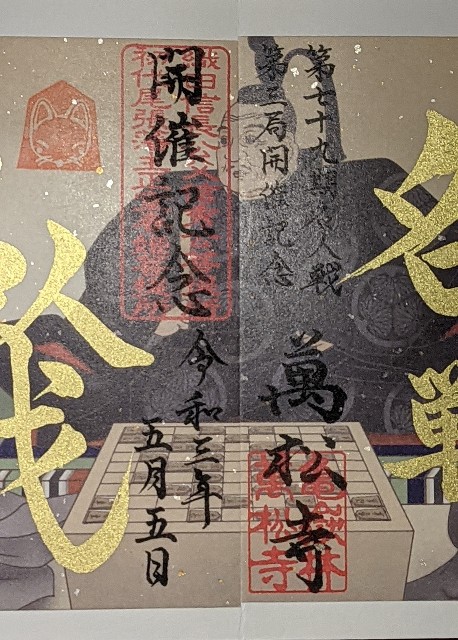 第七十九期名人戦
第三局開催記念
萬松寺
亀嶽林
萬松寺
開催記念
令和三年
五月五日
織田信長公